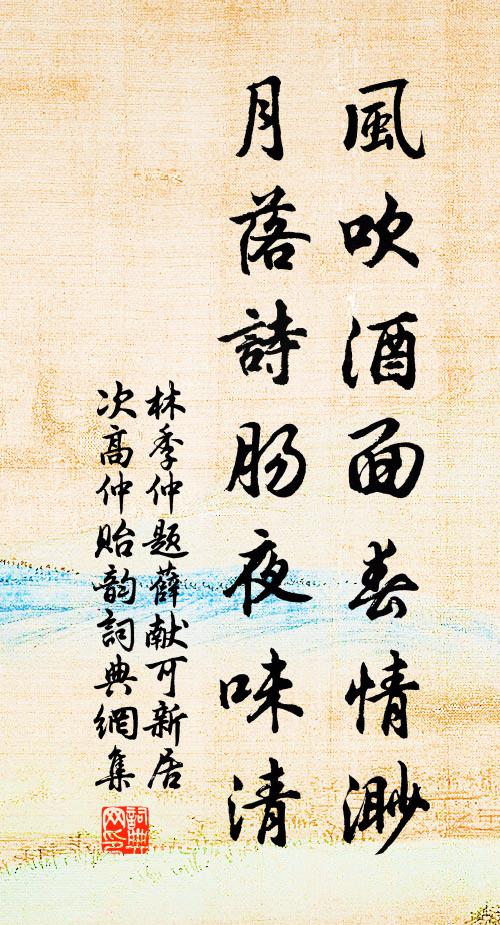 風吹酒面春情渺
月落詩肠夜味清
林季仲题薛献可新居
次高仲貽韵詞典網集